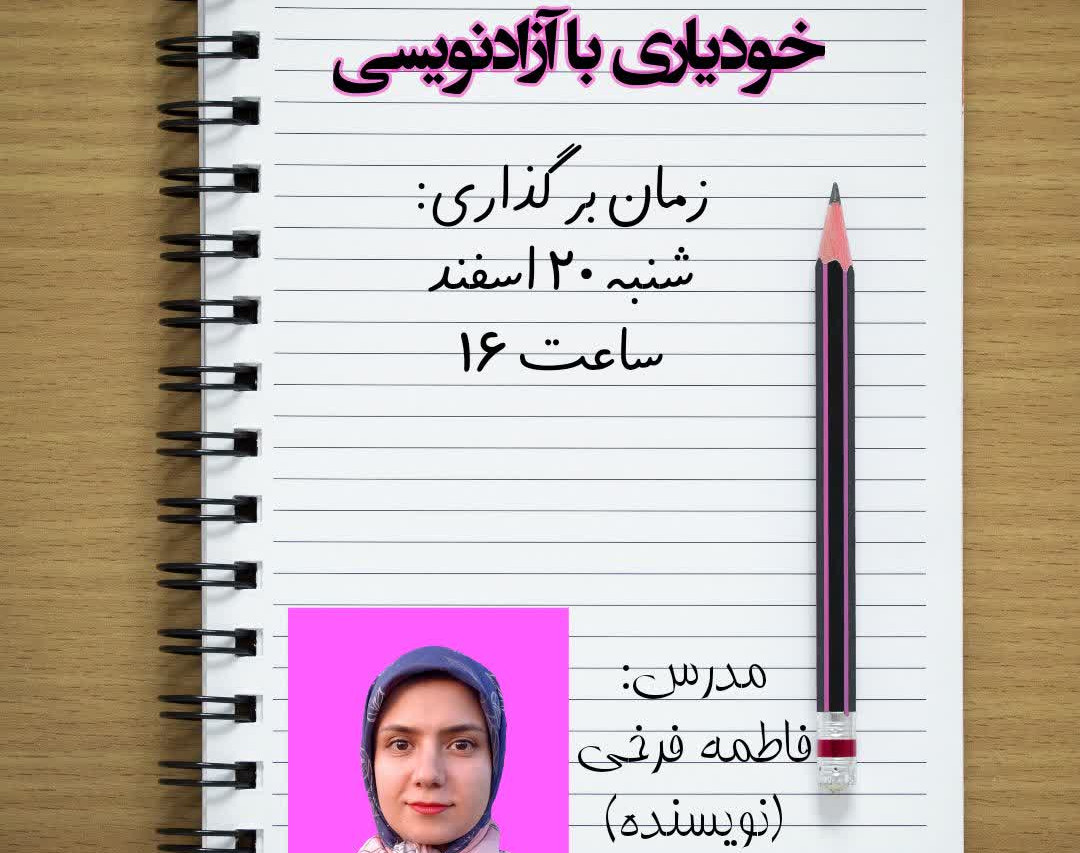 خودیاری با آزادنویسی
زمان برگذاری:
شنبه ۲۰ اسفند
ساعت ۱۶
مدرس:
فاطمه فرخی
(نویسنده)